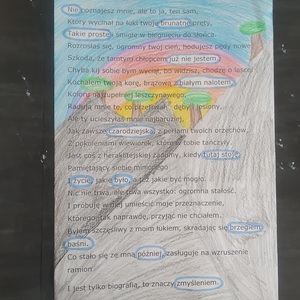 Nie poznajesz mnie, ale to ja, ten sam,
Który wycinał na łuki twoje brunatne pręty,
Takie proste i śmigłe w biegnięciu do słońca.
Rozrosłaś się, ogromny twój cień, hodujesz pędy nowe.
Szkoda, że tamtym chłopcem już nie jestem.
Chyba kij sobie bym wyciął, bo widzisz, chodzę o lasce.
Kochałem twoją korę, brązową z białym nalotem,
Koloru najzupełniej leszczynowego.
Radują mnie
Ale ty ucieszyłabyś mnie najbardziej.
Jak zawsze czarodziejska, z perłami twoich orzechów,
Z pokoleniami wiewiórek, które w tobie tańczyły.
Jest coś z heraklitejskiej zadumy, kiedy tutaj stoję,
Pamiętający siebie minionego
I życie, jakie było, a też jakie być mogło.
Nic nie trwa, ale trwa wszystko: ogromna stałość.
I próbuję w niej umieścić moje przeznaczenie,
Którego, tak naprawdę, przyjąć nie chciałem.
Byłem szczęśliwy z moim łukiem, skradając się brzegiem
baśni.
Co stało się ze mną później, zasługuje na wzruszenie
ramion
I jest tylko biografią, to znaczy zmyśleniem.